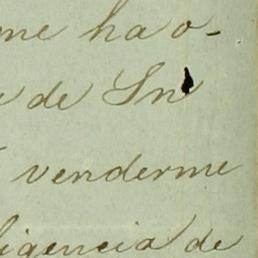 me ha o-
de Sn
venderme
ligencia de